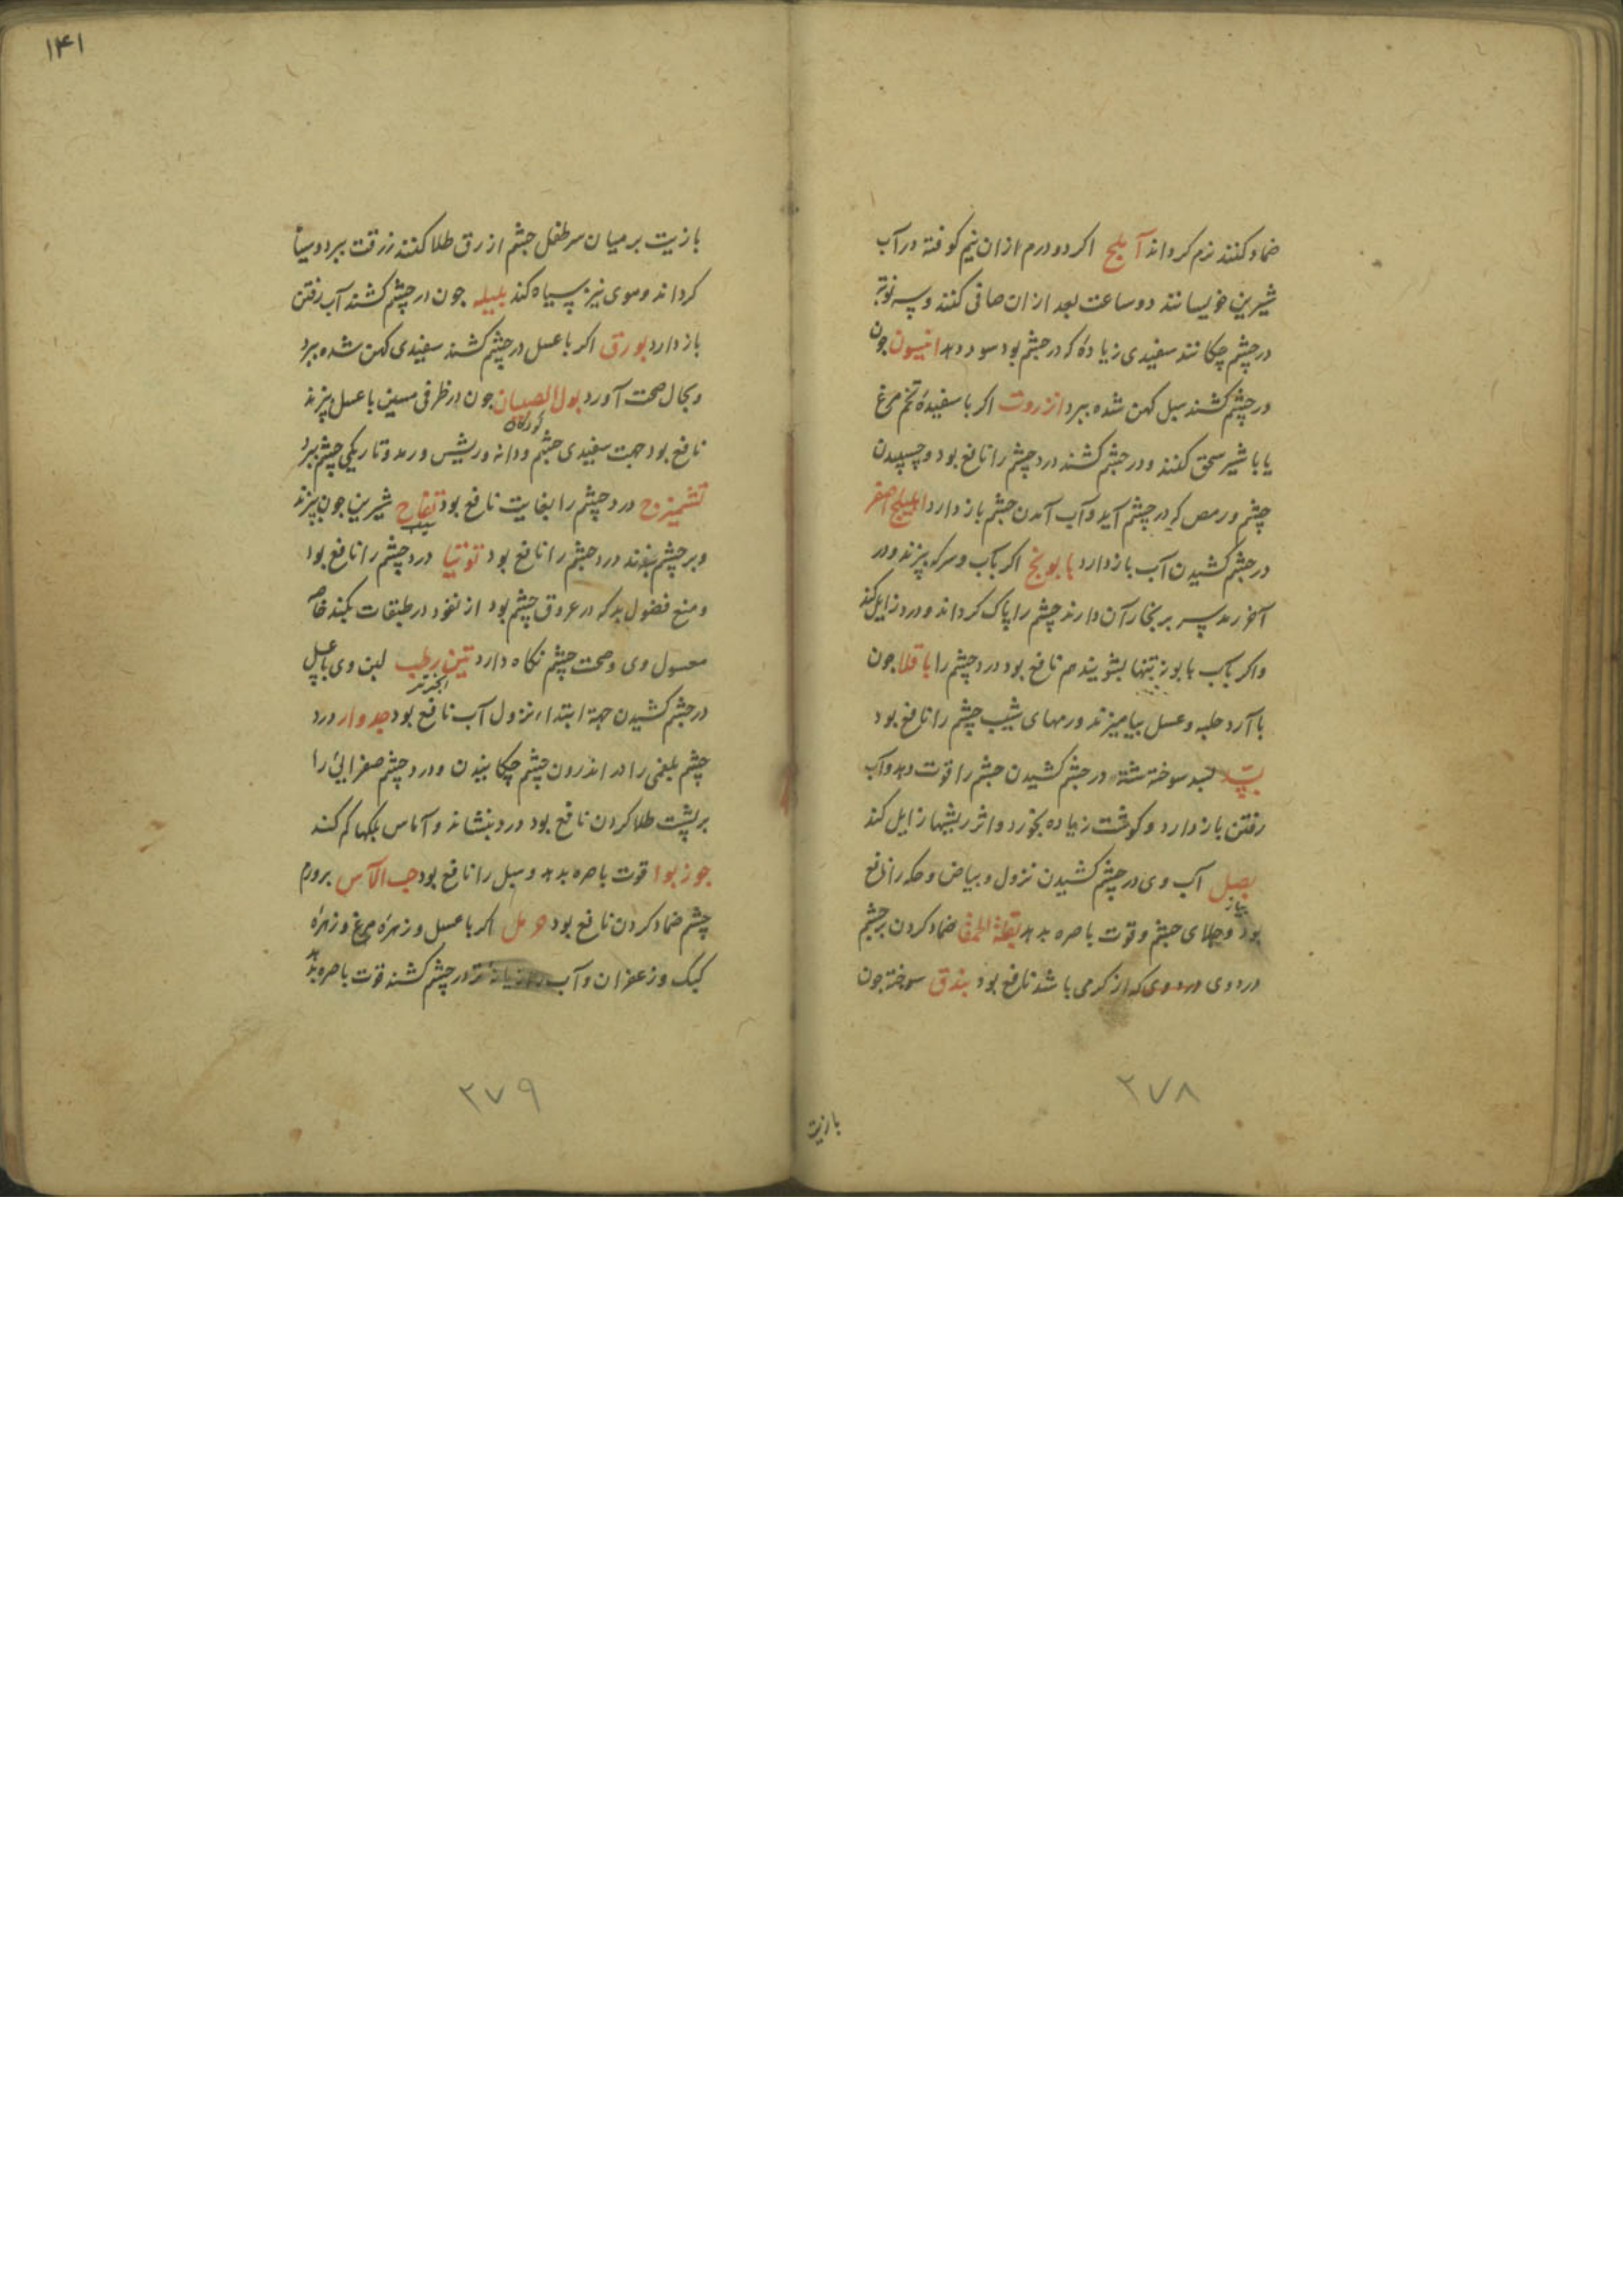 ضماد کنند نرم کرداند آملج اکر دو درم ازان نیم کوفته در آب
شیرین خویسانند دو ساعت بعد ازان صافی کنند و سه نوبة
در چشم چکانند سفیدی زیاده که در چشم بود سود دهد انیسون جون
در چشم کشند سبل کهن شده ببرد انزروت اکر با سفیدهٔ تخم مرغ
یا با شیر سحق کنند و در چشم کشند درد چشم را نافع بود و چسپیدن
چشم و رمص که در چشم آید و آب آمدن چشم باز دارد اهلیلج اصفر
در چشم کشیدن آب باز دارد بابونج اکر بآب و سرکه بپزند و در
آخر رمد سر بر بخار آن دارند چشم را پاک کرداند و درد زایل کند
و اکر بآب بابونه تنها بشویند هم نافع بود درد چشم را باقلا جون
با آرد حلبه و عسل بیامیزند ورمهای شیب چشم را نافع بود
بسد سوخته شسته در چشم کشیدن چشم را قوت دهد و آب
رفتن باز دارد و کوشت زیاده بخورد و اثر ریشها زایل کند
بصل آب وی در چشم کشیدن نزول و بیاض و حکه را نافع
پیاز
بود و جلای چشم و قوت باصره بدهد بقلة الحمقا ضماد کردن بر چشم
درد وی که از کرمی باشد نافع بود بندق سوخته جون
۲۷۸
بازیت
۱۴۱
بازیت بر میان سر طفل چشم ازرق طلا کنند زرقت ببرد و سیاه
کرداند و موی نیز سیاه کند بلیله جون در چشم کشند آب رفتن
باز دارد بورق اکر با عسل در چشم کشند سفیدی کهن شده ببرد
و بحال صحت آورد بول الصبیان جون در ظرفی مسین با عسل بپزند
کودکان
نافع بود جهت سفیدی چشم و دانه و ریش و رمد و تاریکی چشم ببرد
تشمیزج درد چشم را بغایت نافع بود تفاح شیرین جون بپزند
سیب
و بر چشم بندند درد چشم را نافع بود توتیا درد چشم را نافع بود
و منع فضول بد که در عروق چشم بود از نفوذ در طبقات بکند خاصه
مغسول وی و صحت چشم نکاه دارد تین رطب لبن وی با عسل
انجیر تر
در چشم کشیدن جهة ابتداء نزول آب نافع بود جدوار درد
چشم بلغمی را در اندرون چشم چکانیدن و درد چشم صفرایی را
بر پشت طلا کردن نافع بود درد بنشاند و آماس پلکها کم کند
جوز بوا قوت باصره بدهد و سبل را نافع بود حب الآس بر ورم
چشم ضماد کردن نافع بود حرمل اکر با عسل و زهرهٔ مرغ و زهرهٔ
کبک و زعفران و آب رازیانه تر در چشم کشند قوت باصره بدهد
۲۷۹